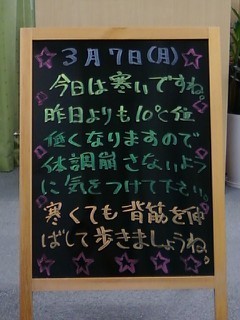 3月7日(月)
今日は寒いですね。
昨日よりも10℃位
低くなりますので
体調崩さないよう
に気をつけて下さい。
寒くても背筋を伸
ばして歩きましょうね。